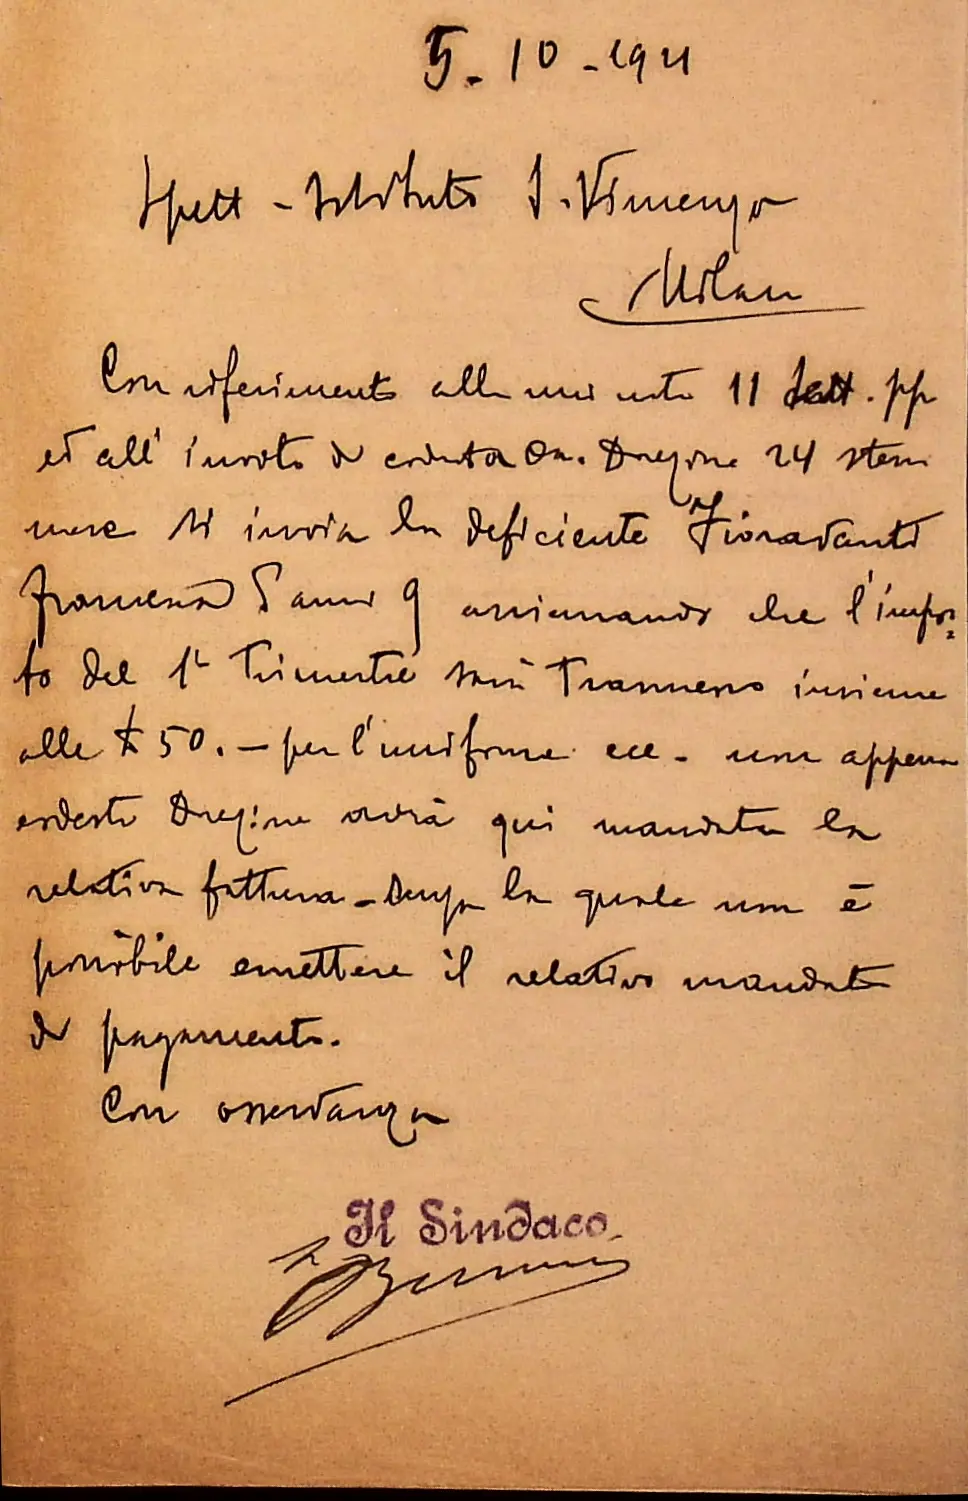 5. 10 - 1921
Spett - Istituto S. Vincenzo
Milano
Con riferimento alla mia nota 11 Sett. pp
ed all' invito di codesta On. Direzione 24 stesso
mese si invia la deficiente Fioravanti
Francesca d'anni 9 assicurando che l'impor=
to del 1° Trimestre sarà trasmesso insieme
alle £ 50. - per l'uniforme ecc - non appena
codesta Direzione avrà qui mandata la
relativa fattura - senza la quale non è
possibile emettere il relativo mandato
di pagamento.
Con osservanza
Il Sindaco